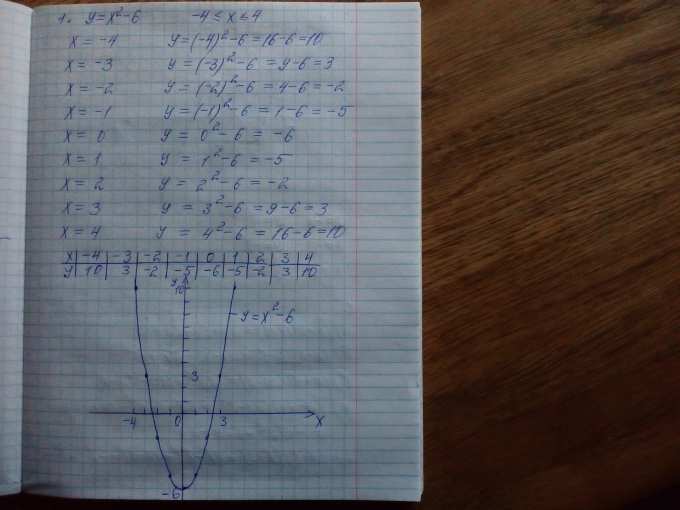 1. y=x²-6 -4≤x≤4
x=-4 y=(-4)²-6=16-6=10
x=-3 y=(-3)²-6=9-6=3
x=-2 y=(-2)²-6=4-6=-2
x=-1 y=(-1)²-6=1-6=-5
x=0 y=0²-6=-6
x=1 y=1²-6=-5
x=2 y=2²-6=-2
x=3 y=3²-6=9-6=3
x=4 y=4²-6=16-6=10
x -4 -3 -2 -1 0 1 2 3 4
y 10 3 -2 -5 -6 -5 -2 3 10
y
10
y=x²-6
3
-4 0 3 x
-6